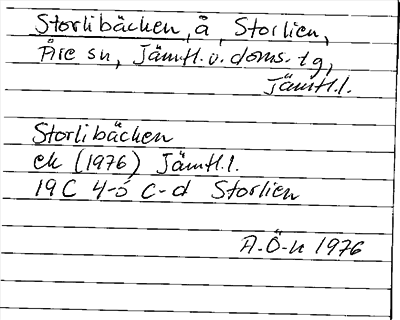 Storlibäcken, å, Storlien,
Åre sn, Jämtl. v. doms. tg,
Jämtl.l.
Storlibäcken
ek (1976) Jämtl.l.
19C 4-5 c-d Storlien
A-Ö-n 1976